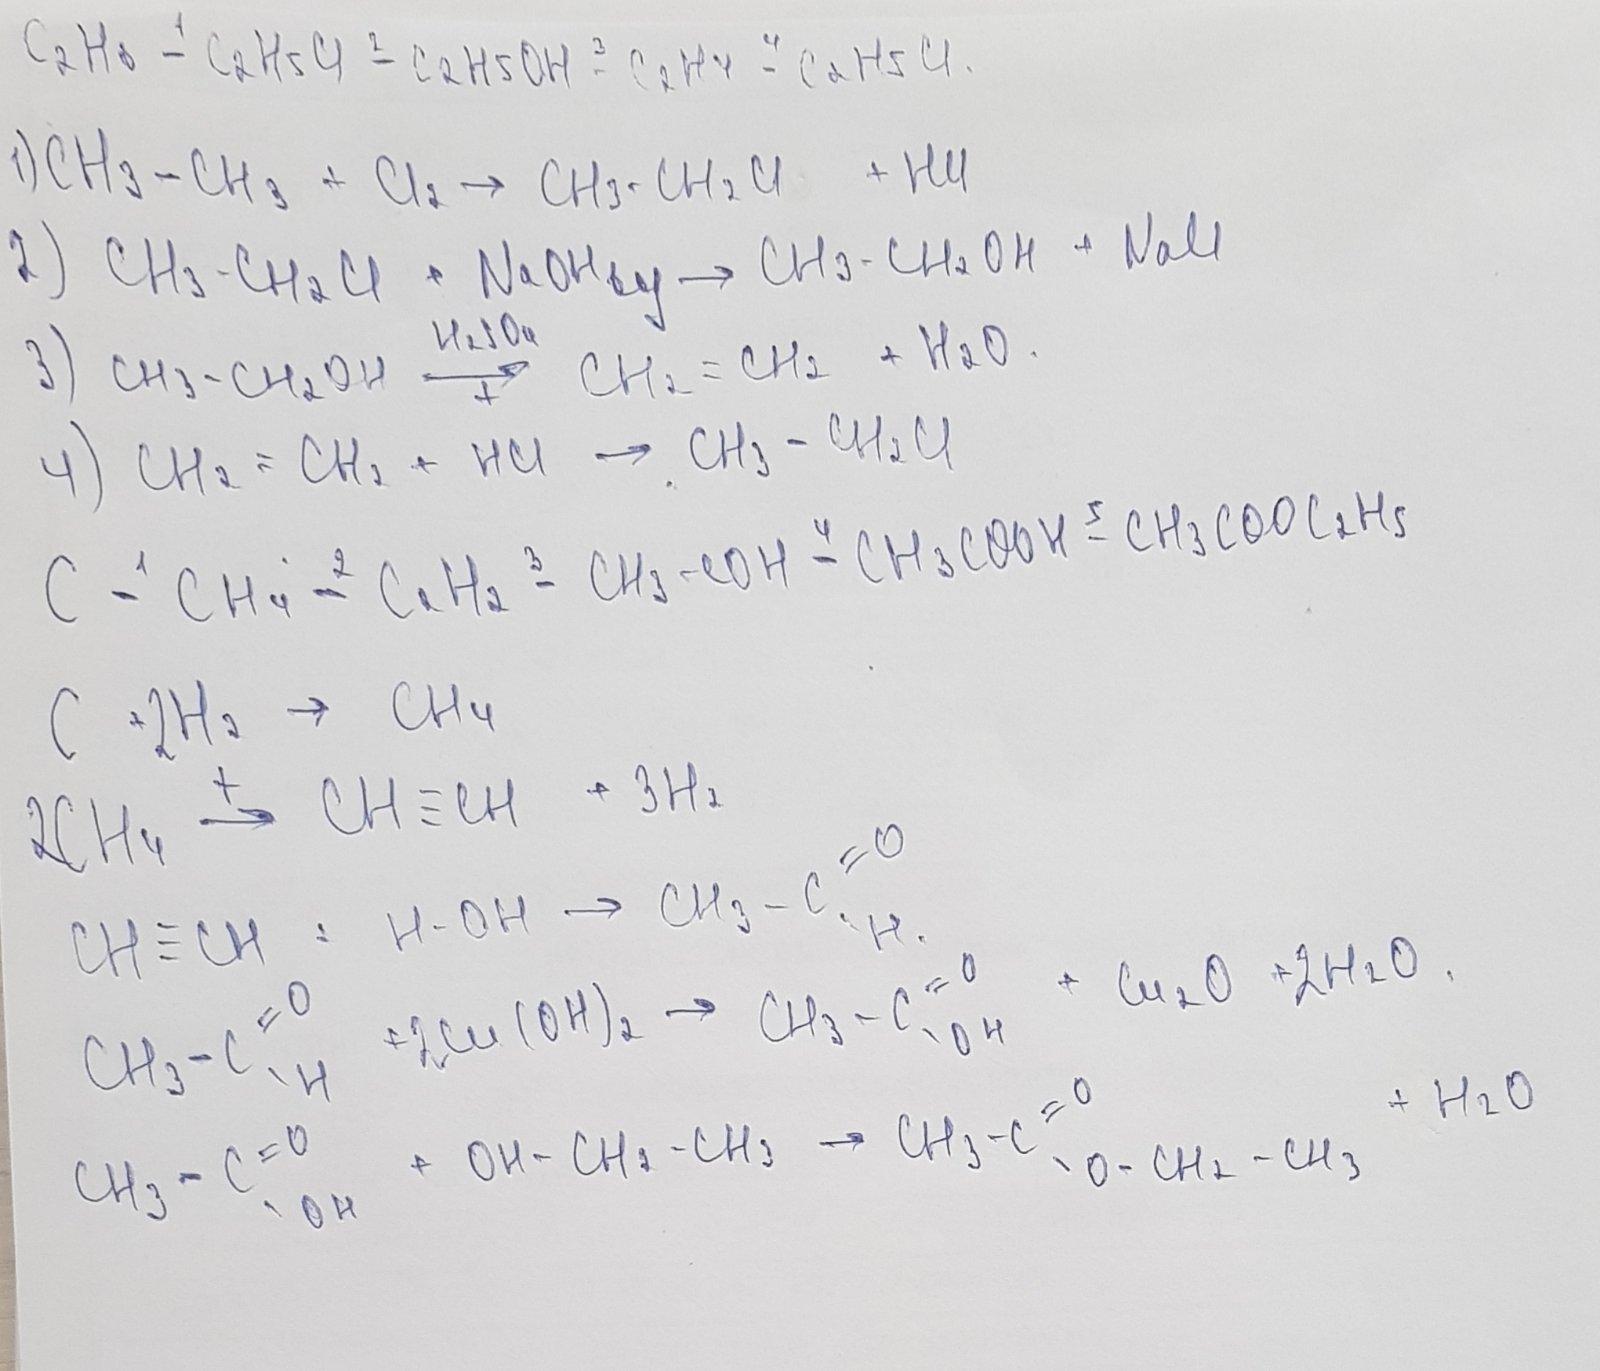 C2H6 -1 C2H5Cl -2 C2H5OH -3 C2H4 -4 C2H5Cl.
1) CH3-CH3 + Cl2 → CH3-CH2Cl + HCl
2) CH3-CH2Cl + NaOH → CH3-CH2OH + NaCl
3) CH3-CH2OH H2SO4 → t CH2=CH2 + H2O.
4) CH2=CH2 + HCl → CH3-CH2Cl
C -1 CH4 -2 C2H2 -3 CH3-COH -4 CH3COOH -5 CH3COOC2H5
C +2H2 → CH4
2CH4 t → CH≡CH + 3H2
CH≡CH + H-OH → CH3-C=O H.
CH3-C=O H +2Cu(OH)2 → CH3-C=O OH + Cu2O +2H2O.
CH3-C=O OH + OH-CH2-CH3 → CH3-C=O O-CH2-CH3 + H2O